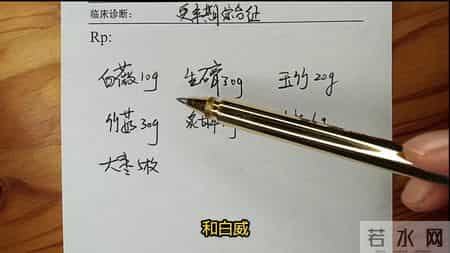 临床诊断： 更年期综合征
Rp:
白薇10g 生石膏30g 玉竹20g
竹茹30g
大枣5枚
和白威
若水网